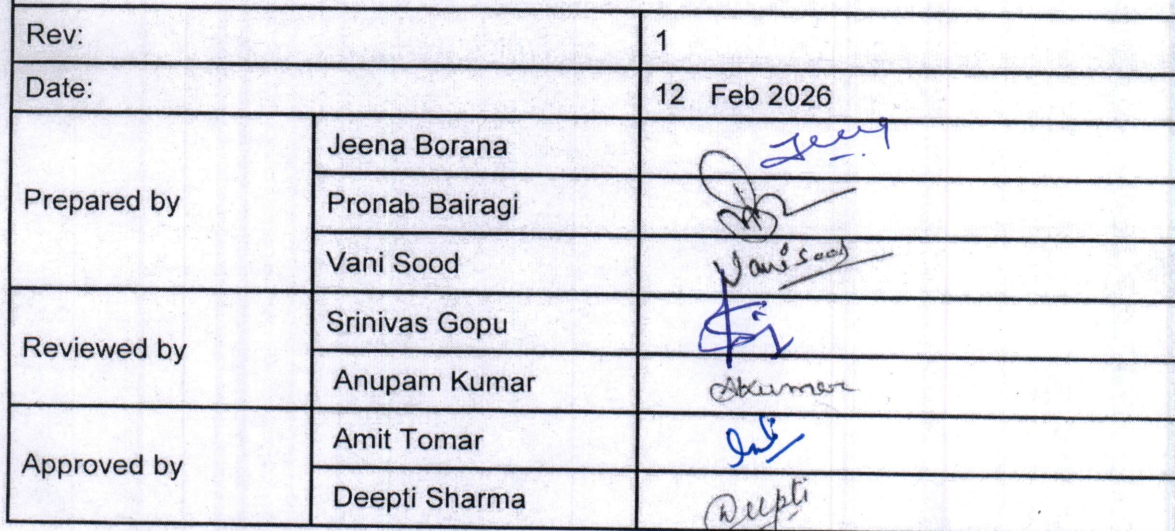 Rev: 1
Date: 12 Feb 2026
Prepared by
Jeena Borana Jeena
Pronab Bairagi
Vani Sood Vani Sood
Reviewed by
Srinivas Gopu
Anupam Kumar AKumar
Approved by
Amit Tomar
Deepti Sharma Deepti